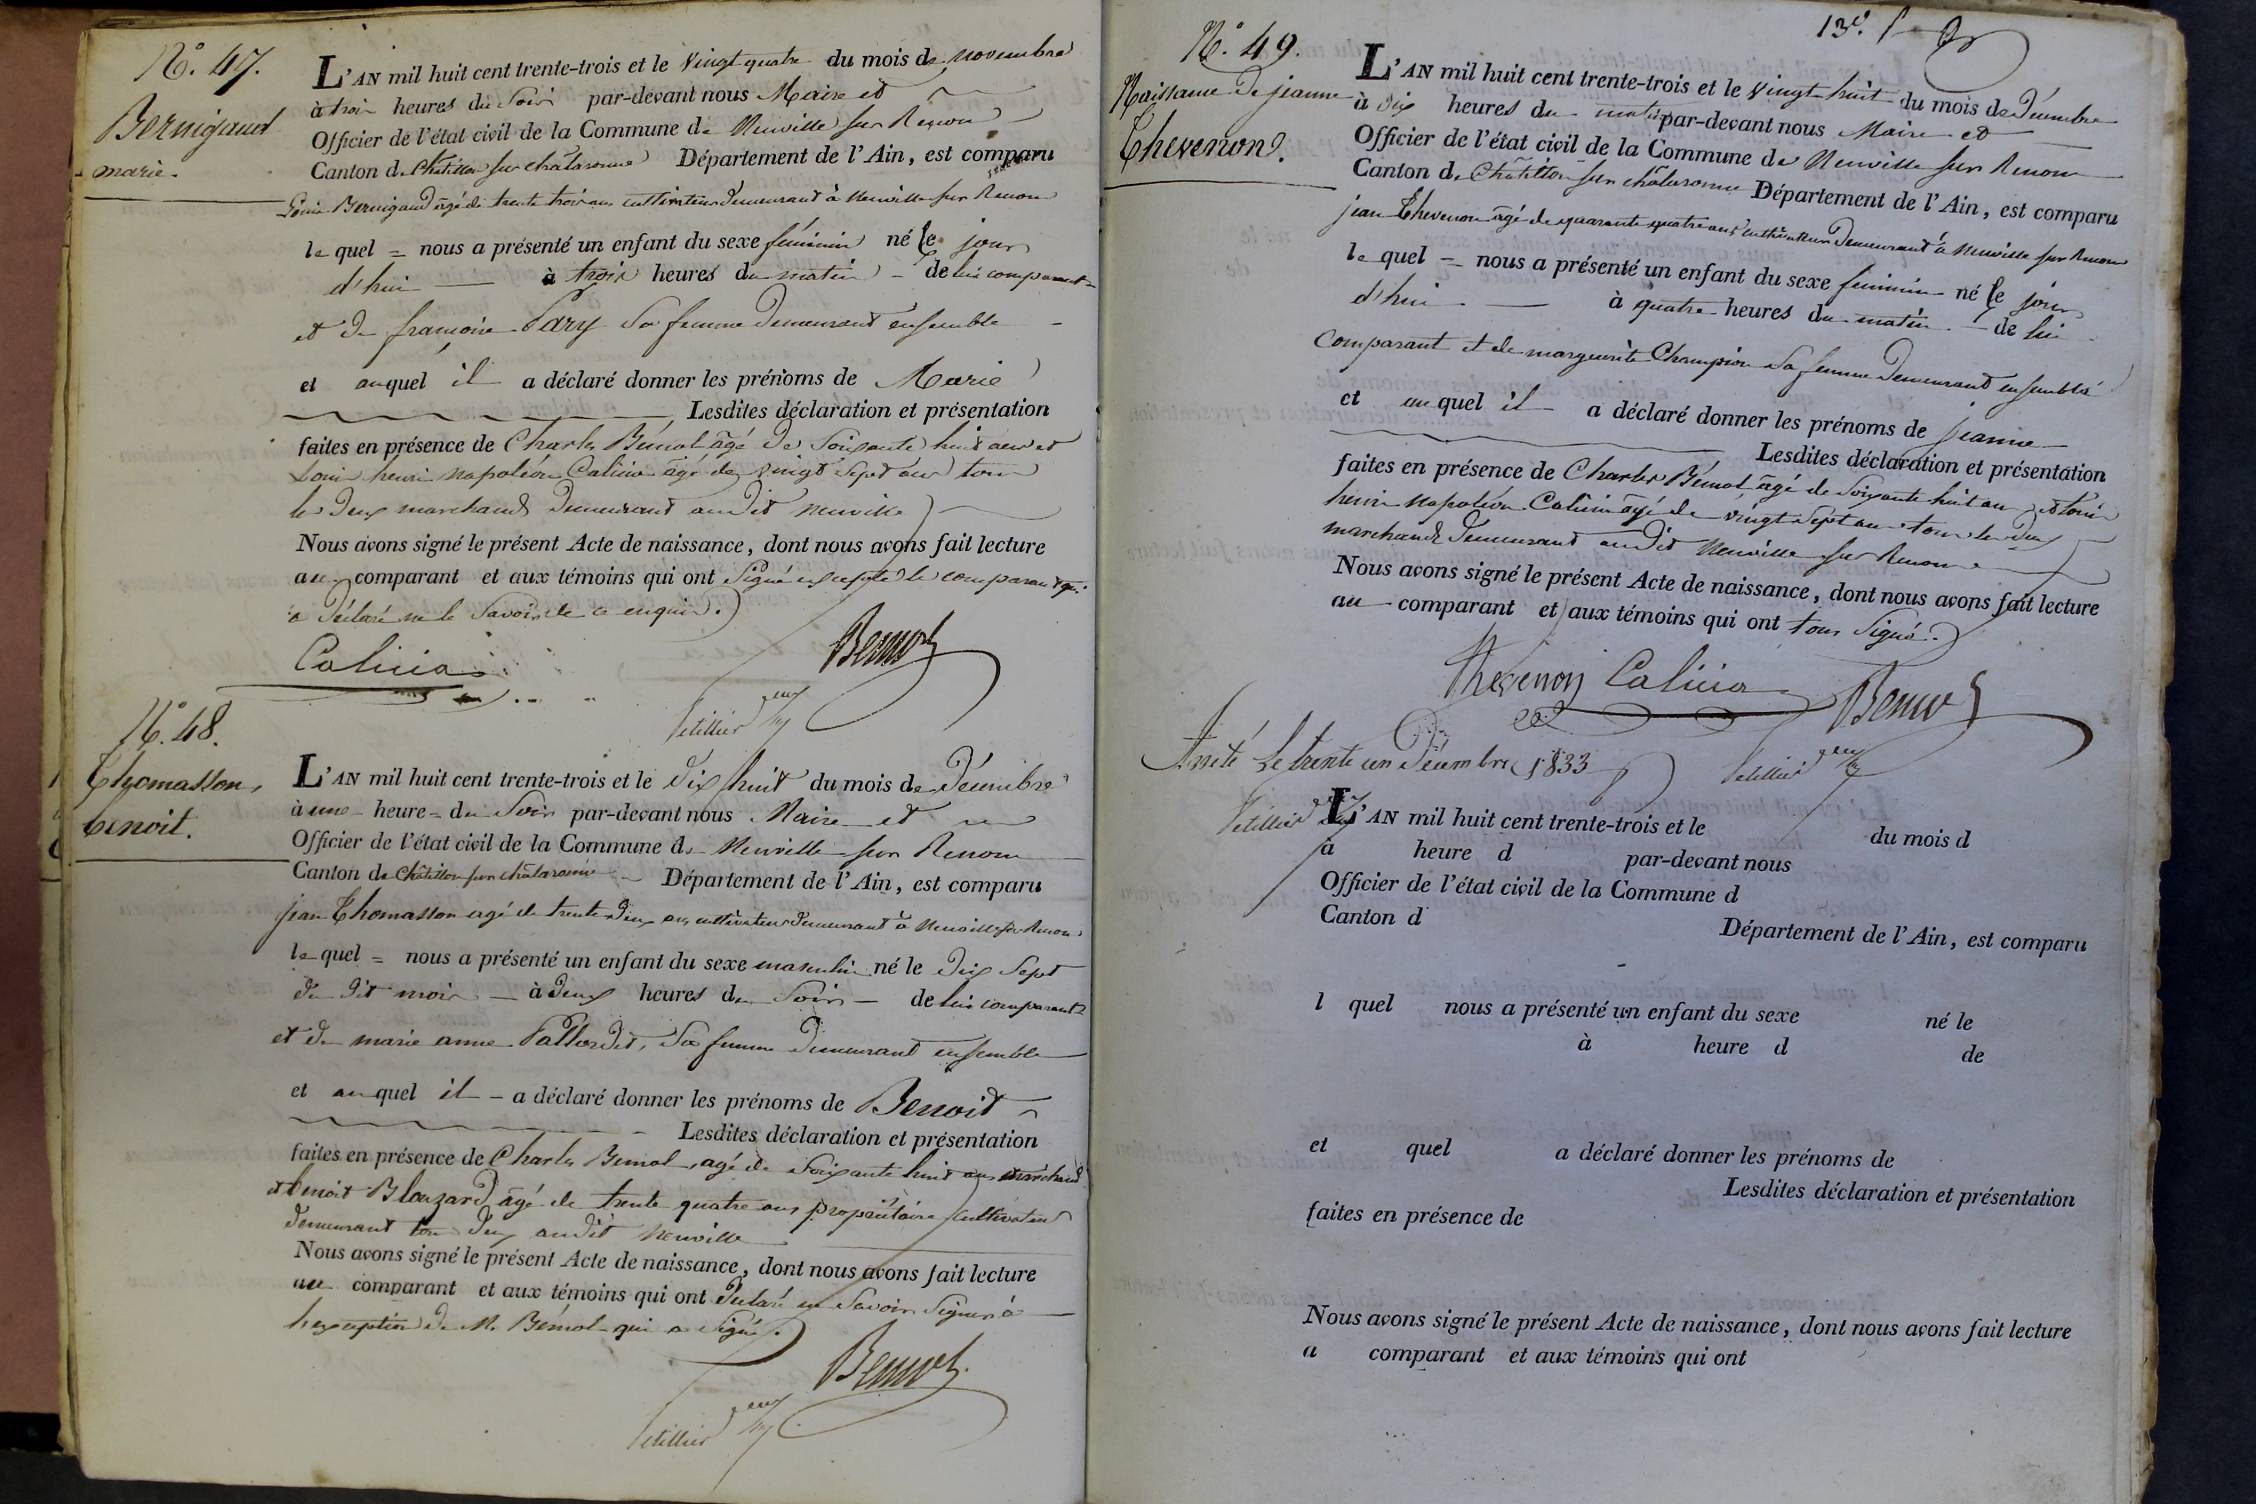 N.° 47.
Bernigaud
marie.
L'AN mil huit cent trente-trois et le vingt quatre du mois de novembre
à trois heures du soir par-devant nous Maire et
Officier de l'état civil de la Commune de Neuville sur Renon
Canton de Châtillon sur châlaronne Département de l'Ain, est comparu
Bernigaud âgé de trente trois ans cultivateur demeurant à Neuville sur Renon
le quel = nous a présenté un enfant du sexe féminin né le jour
d'hui à trois heures du matin de lui comparant
et de françoise Pary sa femme demeurant ensemble
et auquel il a déclaré donner les prénoms de Marie
Lesdites déclaration et présentation
faites en présence de Charles Bémol âgé de soixante huit ans et
Louis henri napoléon Calicia âgé de vingt sept ans tous
les deux marchands demeurant audit neuville
Nous avons signé le présent Acte de naissance, dont nous avons fait lecture
au comparant et aux témoins qui ont signé excepté le comparant qui
a déclaré ne le savoir de ce enquis.
Calicia Bemol
N.° 48.
Thomasson,
benoit.
L'AN mil huit cent trente-trois et le dix huit du mois de décembre
à une heure = du soir par-devant nous Maire et
Officier de l'état civil de la Commune de Neuville sur Renon
Canton de Châtillon sur châlaronne Département de l'Ain, est comparu
jean Thomasson agé de trente deux ans cultivateur demeurant à Neuville sur Renon
le quel = nous a présenté un enfant du sexe masculin né le dix sept
du dit mois à deux heures du soir de lui comparant
et de marie anne sa femme demeurant ensemble
et auquel il a déclaré donner les prénoms de Benoit
Lesdites déclaration et présentation
faites en présence de Charles Bemol, agé de soixante huit ans marchand
et benoit Blouzard âgé de trente quatre ans propriétaire cultivateur
demeurant tous deux audit neuville
Nous avons signé le présent Acte de naissance, dont nous avons fait lecture
au comparant et aux témoins qui ont déclaré ne savoir signer à
l'exception de M. Bémol qui a signé.
Bemol
13.e
N.° 49.
Naissance de jeanne
Thevenon.
L'AN mil huit cent trente-trois et le vingt huit du mois de décembre
à dix heures du matin par-devant nous Maire et
Officier de l'état civil de la Commune de Neuville sur Renon
Canton de Châtillon sur châlaronne Département de l'Ain, est comparu
jean Thevenon âgé de quarante quatre ans cultivateur demeurant à Neuville sur Renon
le quel = nous a présenté un enfant du sexe féminin né le jour
d'hui à quatre heures du matin de lui
comparant et de marguerite Champion sa femme demeurant ensemble
et auquel il a déclaré donner les prénoms de jeanne
Lesdites déclaration et présentation
faites en présence de Charles Bémol âgé de soixante huit ans et Louis
henri napoléon Calicia âgé de vingt sept ans tous les deux
marchands demeurant audit Neuville sur Renon
Nous avons signé le présent Acte de naissance, dont nous avons fait lecture
au comparant et aux témoins qui ont tous signé.
Thevenon Calicia Bemol
Arrêté le trente un décembre 1833
L'AN mil huit cent trente-trois et le du mois d
à heure d par-devant nous
Officier de l'état civil de la Commune d
Canton d Département de l'Ain, est comparu
l quel nous a présenté un enfant du sexe né le
à heure d de
et quel a déclaré donner les prénoms de
Lesdites déclaration et présentation
faites en présence de
Nous avons signé le présent Acte de naissance, dont nous avons fait lecture
a comparant et aux témoins qui ont